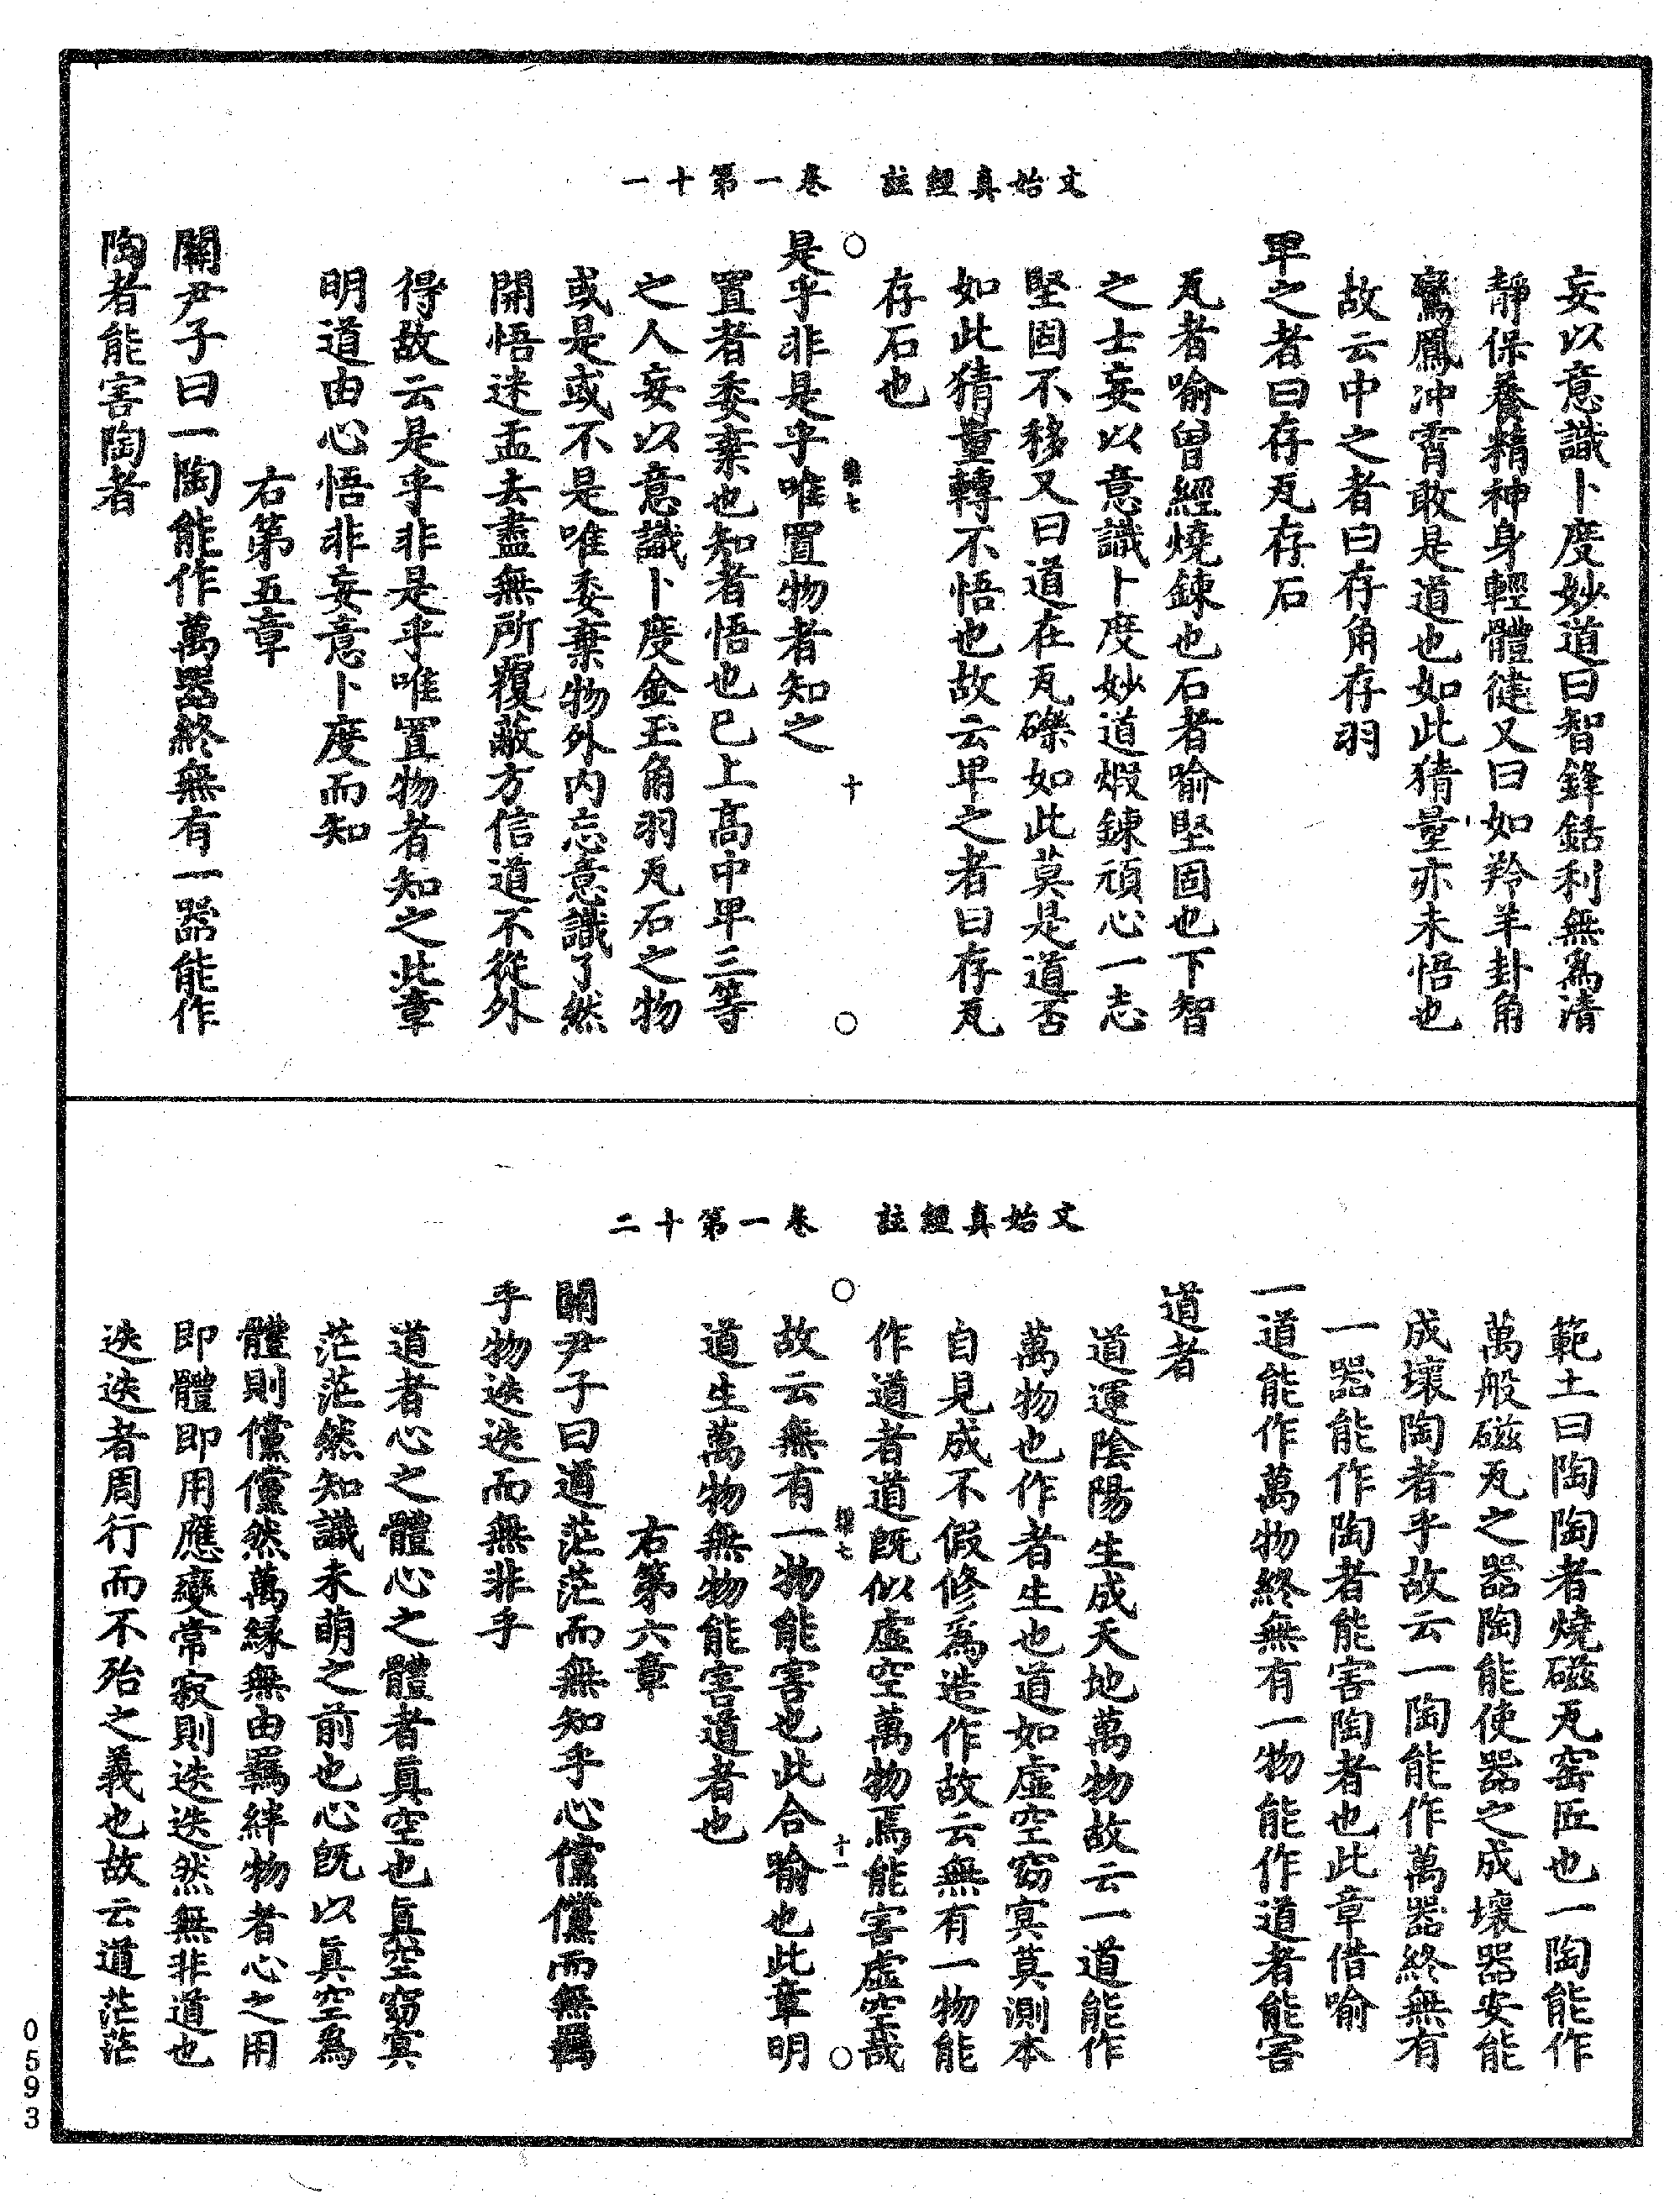 文始真經註　卷一第十一
妄以意識卜度妙道曰智鋒銛利無為清
靜保養精神身輕體徤又曰如羚羊卦角
鸞鳳沖霄敢是道也如此猜量亦未悟也
故云中之者曰存角存羽
卑之者曰存瓦存石
瓦者喻曾經燒鍊也石者喻堅固也下智
之士妄以意識卜度妙道煆鍊頑心一志
堅固不移又曰道在瓦礫如此莫是道否
如此猜量轉不悟也故云卑之者曰存瓦
存石也
十
是乎非是乎唯置物者知之
置者委棄也知者悟也已上高中卑三等
之人妄以意識卜度金玉角羽瓦石之物
或是或不是唯委棄物外内忘意識了然
開悟迷盂去盡無所覆蔽方信道不從外
得故云是乎非是乎唯置物者知之此章
明道由心悟非妄意卜度而知
右第五章
關尹子曰一陶能作萬器終無有一器能作
陶者能害陶者
文始真經註　卷一第十二
範土曰陶陶者燒磁瓦窑匠也一陶能作
萬般磁瓦之器陶能使器之成壞器安能
成壞陶者乎故云一陶能作萬器終無有
一器能作陶者能害陶者也此章借喻
一道能作萬物終無有一物能作道者能害
道者
道運陰陽生成天地萬物故云一道能作
萬物也作者生也道如虛空窈冥莫測本
自見成不假修為造作故云無有一物能
作道者道既似虛空萬物焉能害虛空哉
十一
故云無有一物能害也此合喻也此章明
道生萬物無物能害道者也
右第六章
關尹子曰道茫茫而無知乎心儻儻而無羈
乎物迭迭而無非乎
道者心之體心之體者真空也真空窈冥
茫茫然知識未萌之前也心既以真空為
體則儻儻然萬緣無由羈絆物者心之用
即體即用應變常寂則迭迭然無非道也
迭迭者周行而不殆之義也故云道茫茫
0593